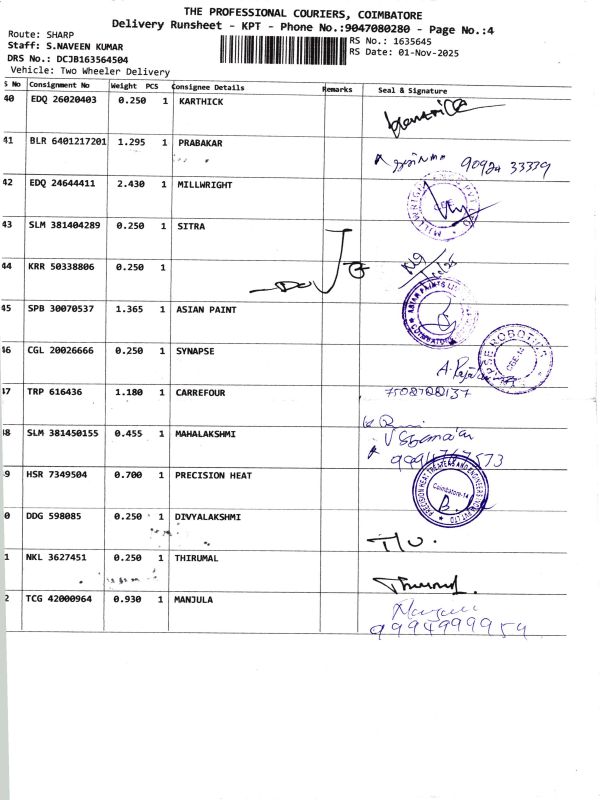 THE PROFESSIONAL COURIERS, COIMBATORE
Delivery Runsheet - KPT - Phone No.:9047080280 - Page No.:4
Route: SHARP
Staff: S.NAVEEN KUMAR
DRS No.: DCJB163564504
Vehicle: Two Wheeler Delivery
RS No.: 1635645
RS Date: 01-Nov-2025
S No Consignment No Weight PCS Consignee Details Remarks Seal & Signature
40 EDQ 26020403 0.250 1 KARTHICK
41 BLR 6401217201 1.295 1 PRABAKAR
42 EDQ 24644411 2.430 1 MILLWRIGHT
43 SLM 381404289 0.250 1 SITRA
44 KRR 50338806 0.250 1
45 SPB 30070537 1.365 1 ASIAN PAINT
46 CGL 20026666 0.250 1 SYNAPSE
47 TRP 616436 1.180 1 CARREFOUR
48 SLM 381450155 0.455 1 MAHALAKSHMI
9 HSR 7349504 0.700 1 PRECISION HEAT
PRECISION HEAT TREATERS AND ENGINEERS
Coimbatore-14
0 DDG 598085 0.250 1 DIVYALAKSHMI
1 NKL 3627451 0.250 1 THIRUMAL
2 TCG 42000964 0.930 1 MANJULA
9994999954